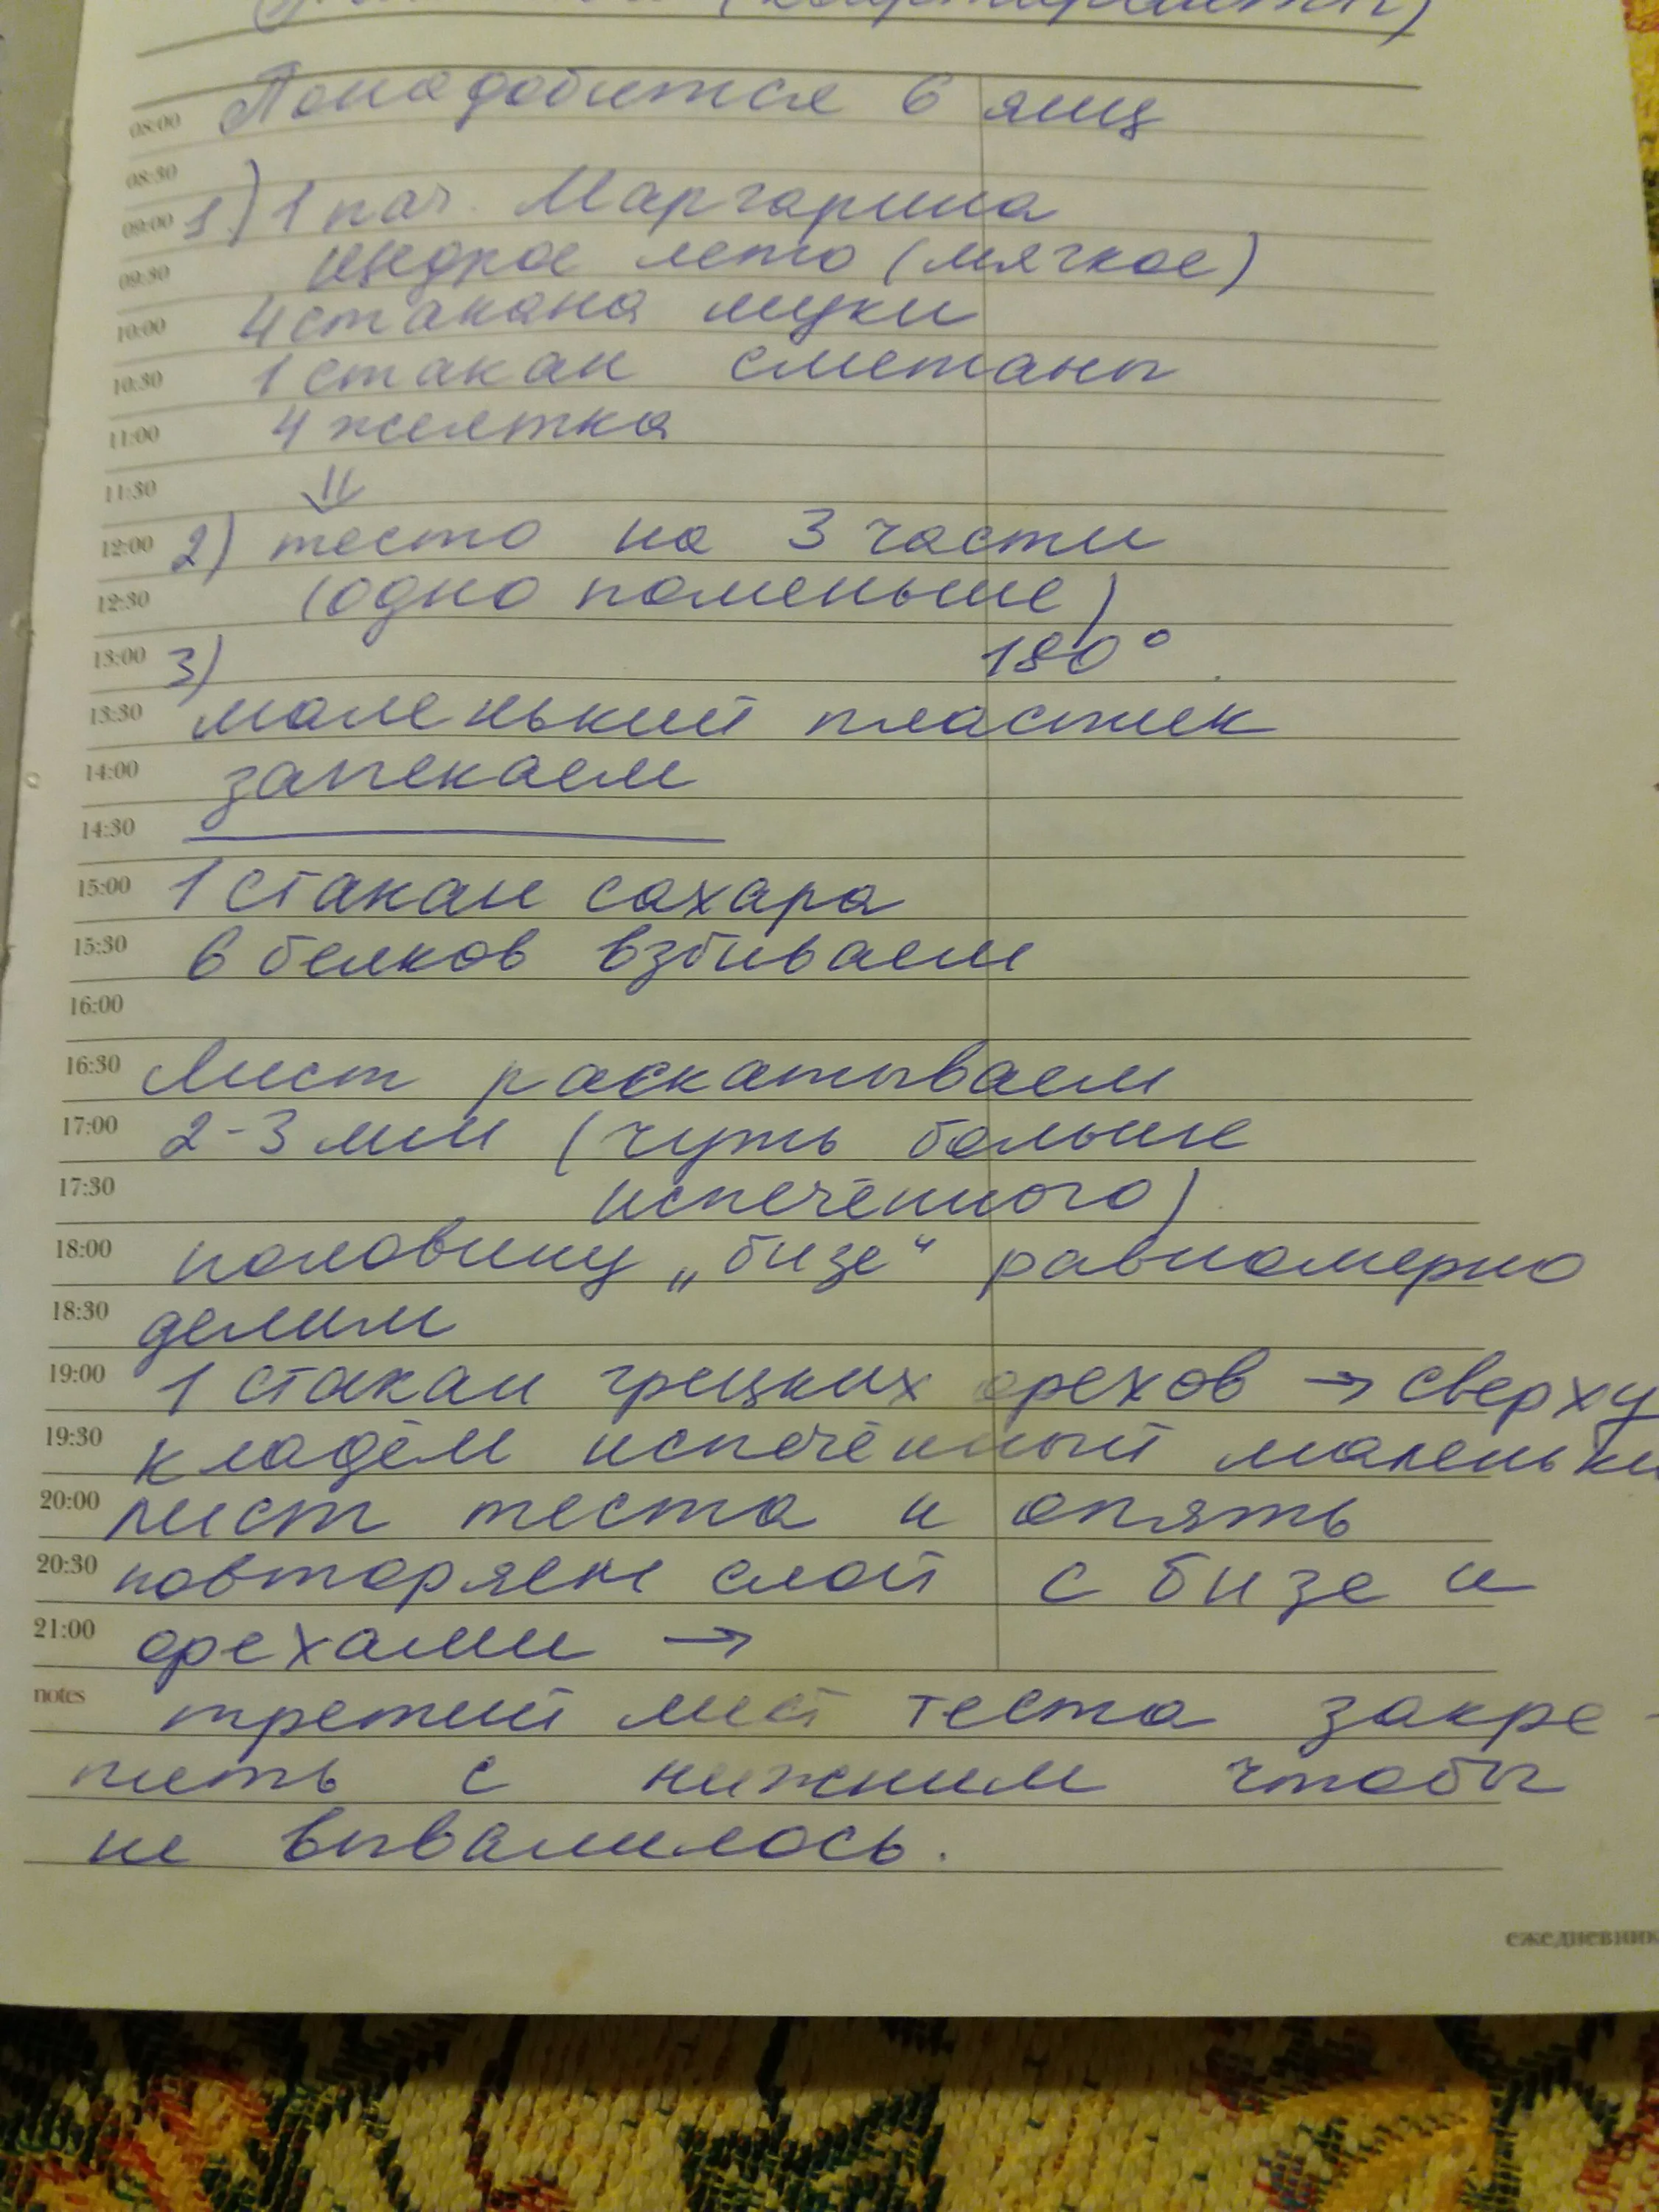 Понадобится 6 яиц
08:00
08:30
09:00 1.) 1 пач. Маргарина
09:30 щедрое лето (мягкое)
10:00 4 стакана муки
10:30 1 стакан сметаны
11:00 4 желтка
11:30 ⇓
12:00 2) тесто на 3 части
12:30 (одно поменьше)
13:00 3) 180°
13:30 маленький пластик
14:00 запекаем
14:30
15:00 1 стакан сахара
15:30 6 белков взбиваем
16:00
16:30 Лист раскатываем
17:00 2-3 мм (чуть больше
17:30 испечённого)
18:00 половину „бизе“ равномерно
18:30 делим
19:00 1 стакан грецких орехов → сверху
19:30 кладём испечённый маленьки
20:00 лист теста и опять
20:30 повторяем слой с бизе и
21:00 орехами →
notes третий лист теста закре-
пить с нижним чтобы
не вывалилось.
ежедневник